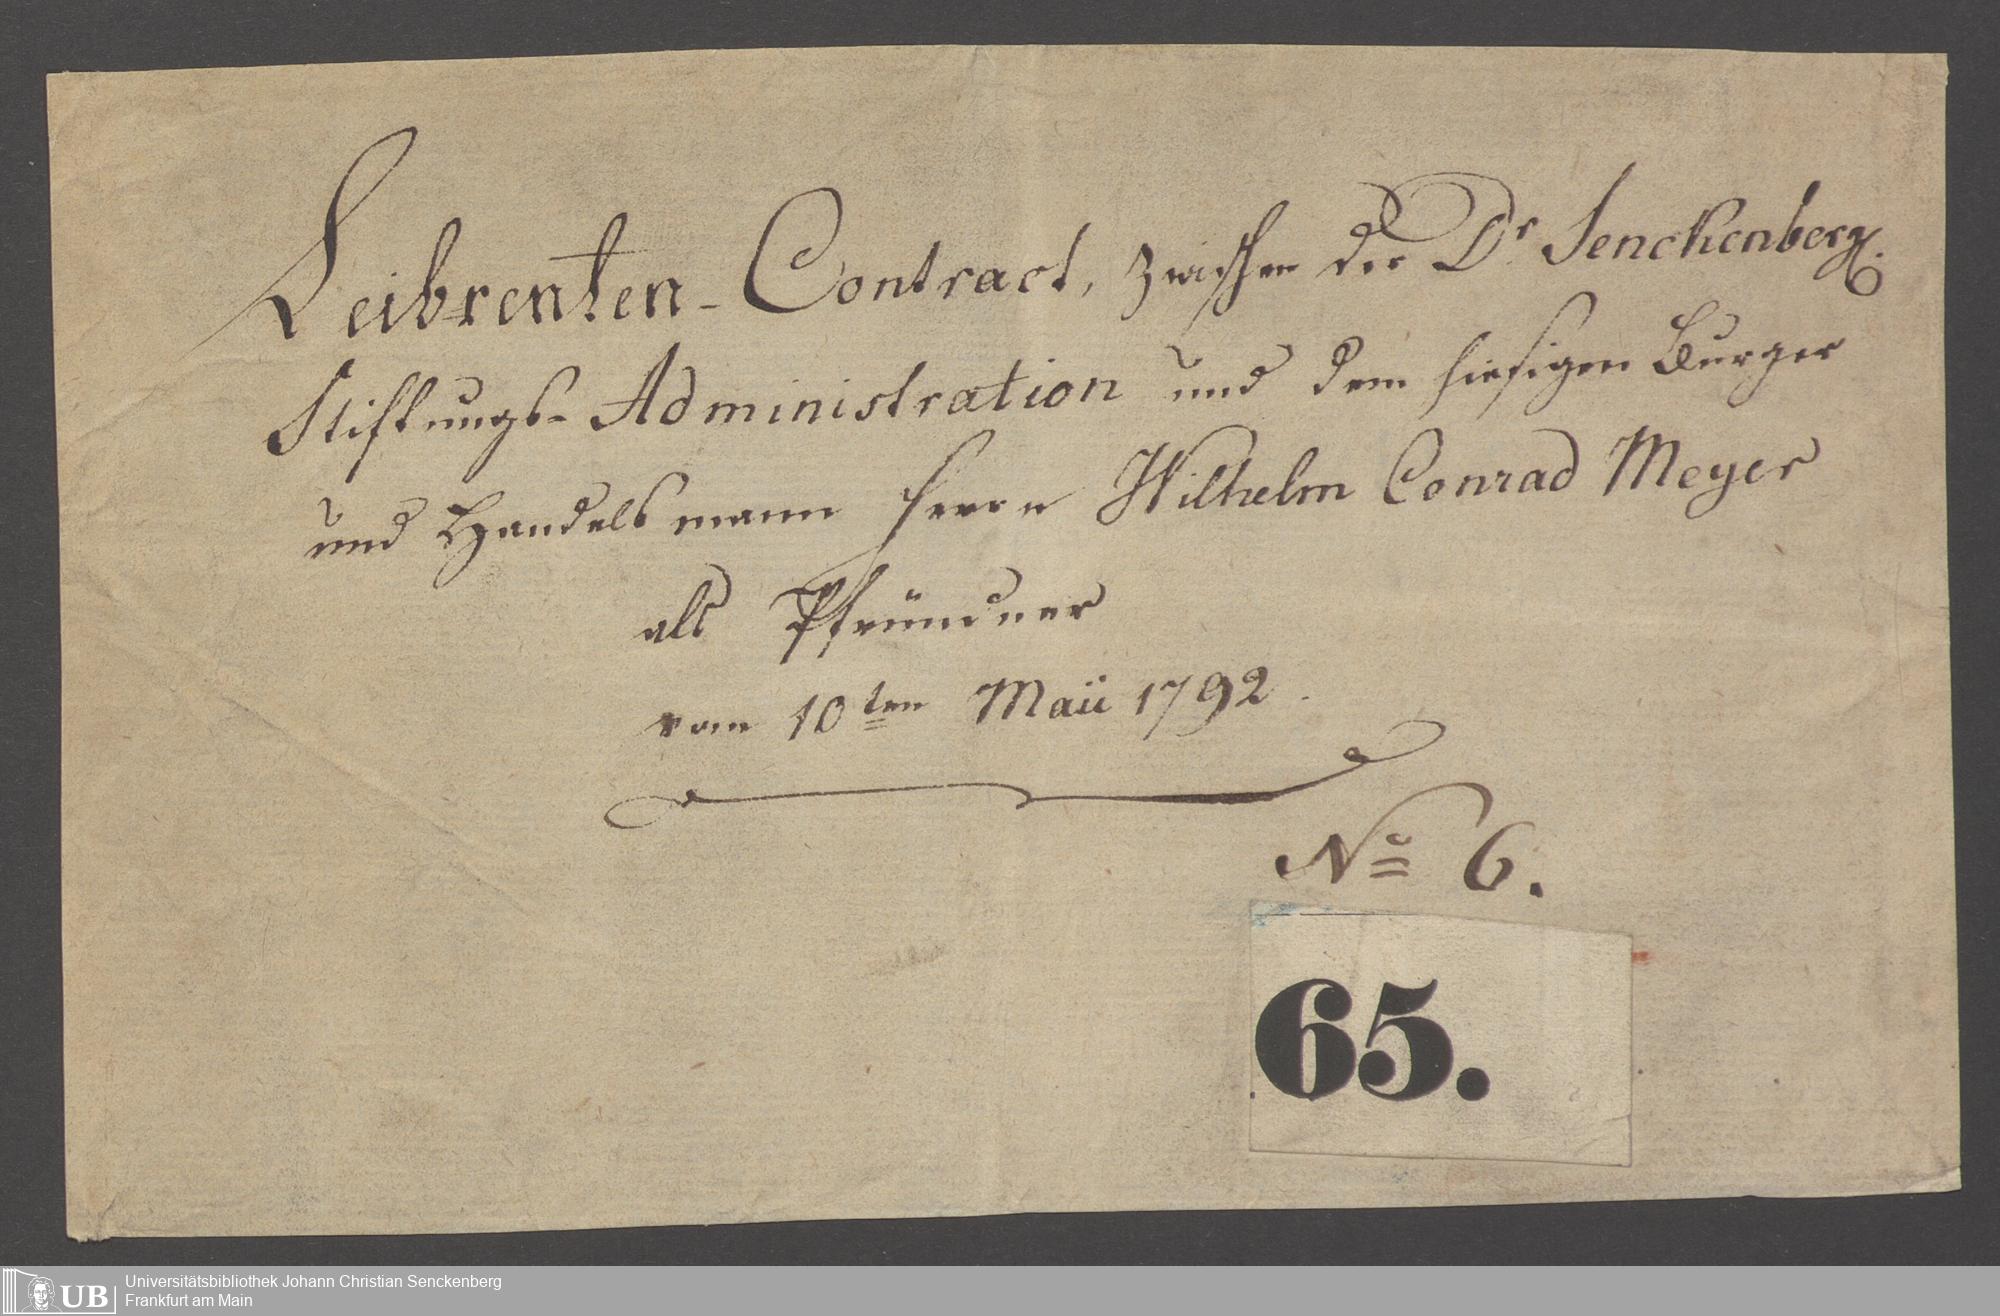 Leibrenten-Contract, zwischen der Dr Senckenberg.
Stiftungs-Administration und dem hiesigen Burger
und Handelsmann Herrn Wilhelm Conrad Meyer
als Pfründner
vom 10ten Maii 1792.
No 6.
65.
UB Universitätsbibliothek Johann Christian Senckenberg
Frankfurt am Main